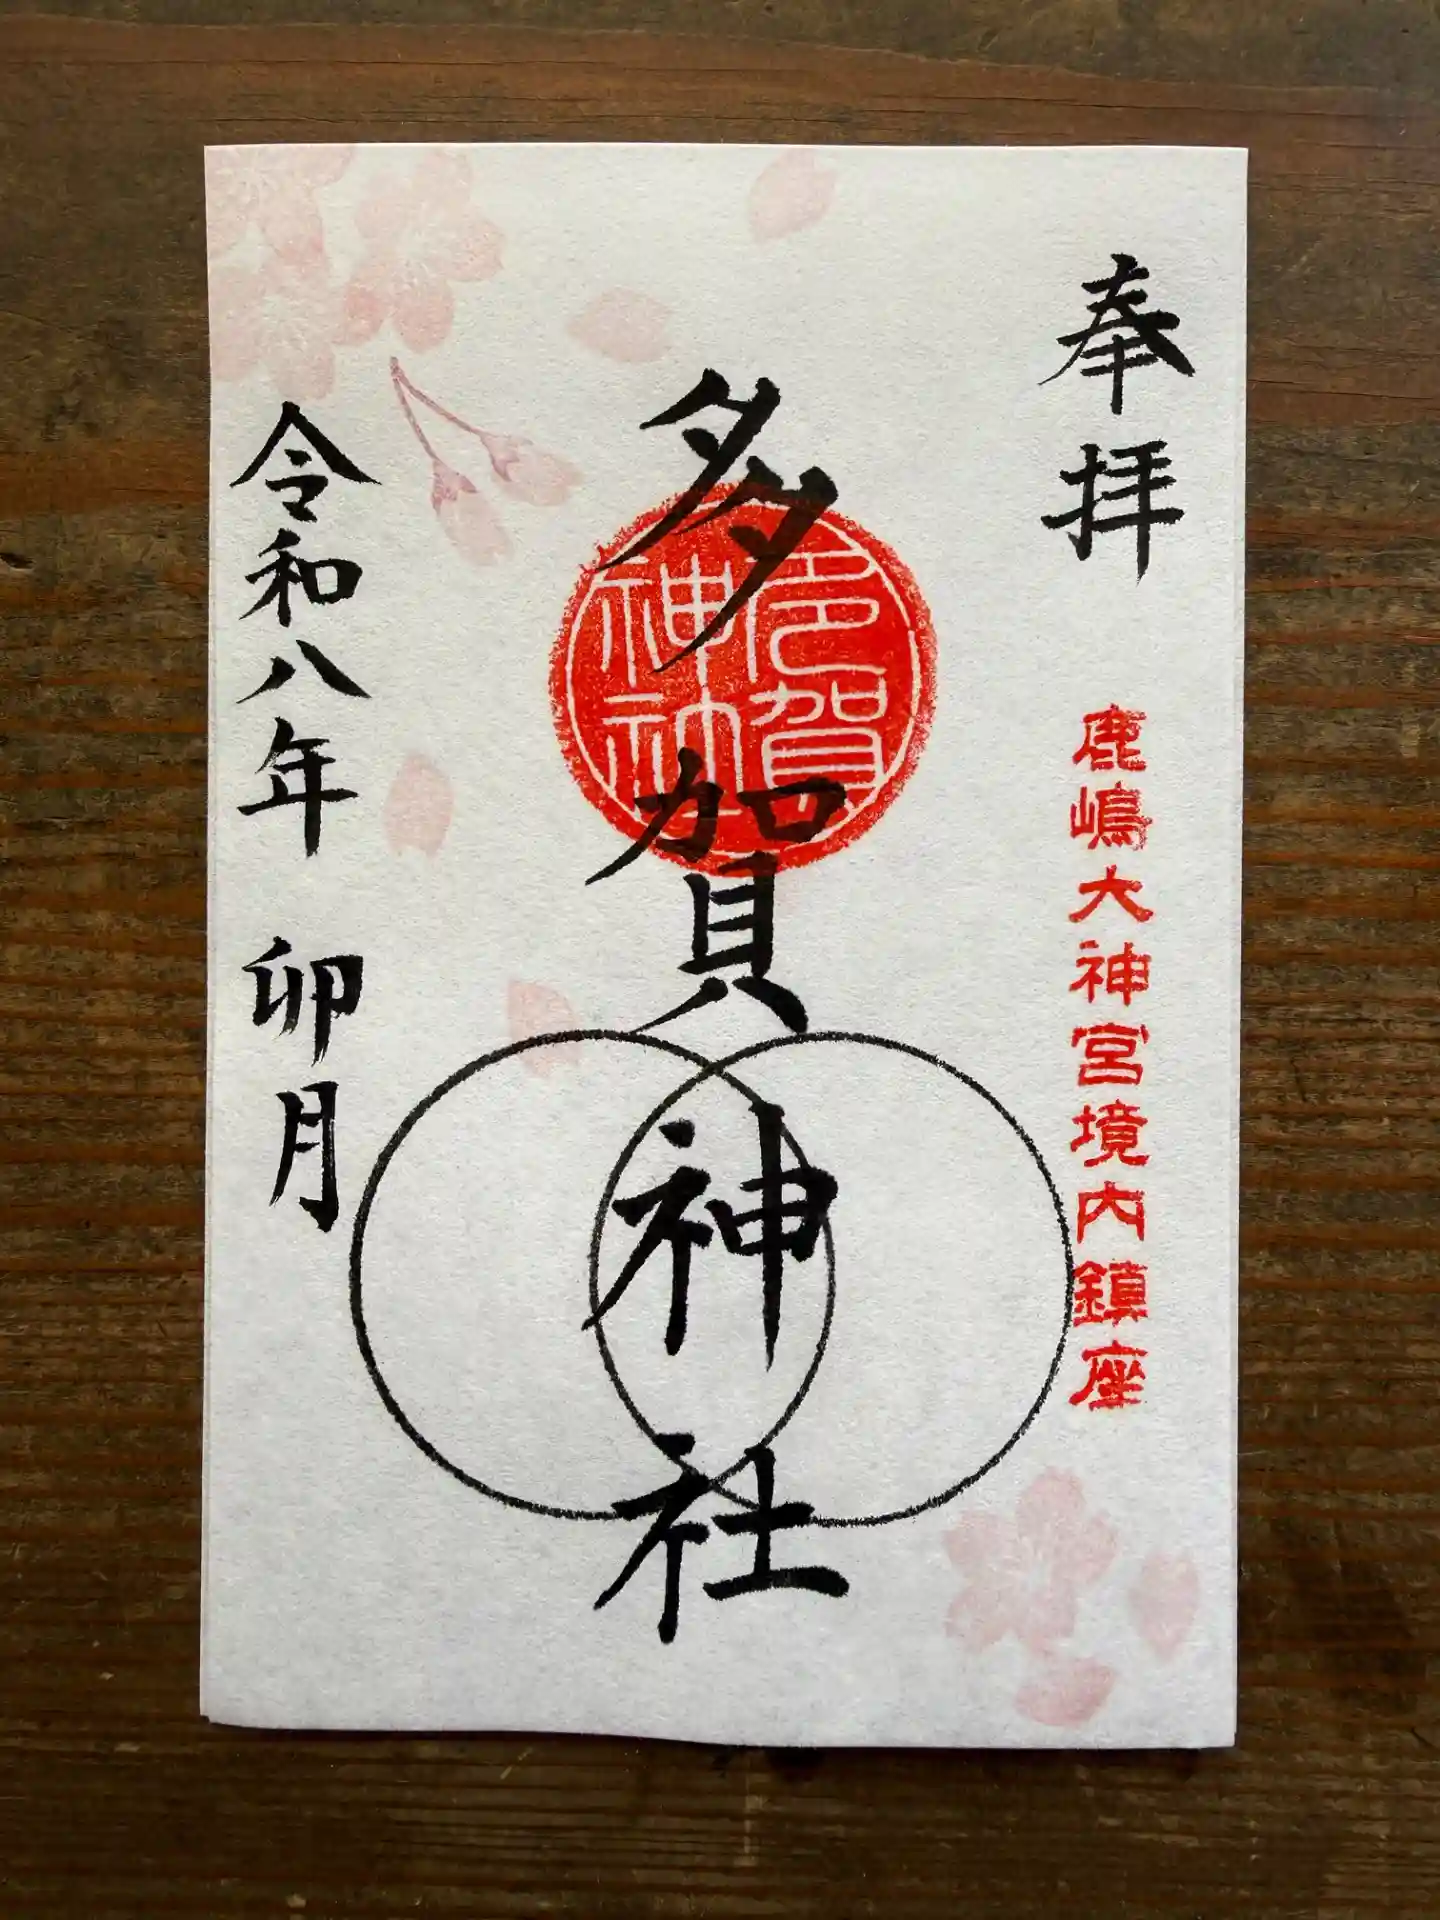 奉拝
鹿嶋大神宮境内鎮座
多賀神社
多賀
神社
令和八年 卯月